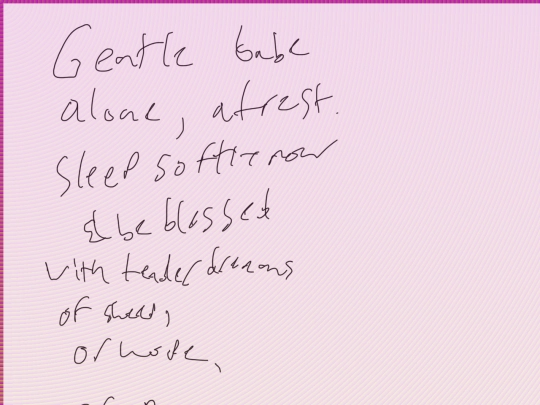 Gentle babe
alone, at rest.
Sleep softle now
& be blessed
with tender dreams
of
of hope,
of